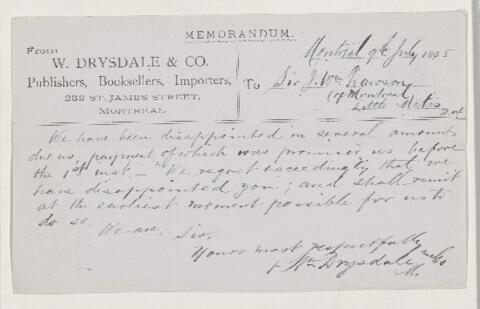 MEMORANDUM.
From
W. DRYSDALE & CO.
Publishers, Booksellers, Importers,
232 ST. JAMES STREET,
MONTREAL.
Montreal 9th July 1895
To Sir J. Wm Dawson
(of Montreal
Little Metis
We have been disappointed in several amounts
due us, payment of which was promised us before
the 1st inst — We regret exceedingly that we
have disappointed you; and shall remit
at the earliest moment possible for us to
do so.
We are, Sir,
Yours most respectfully
Wm Drysdale & Co